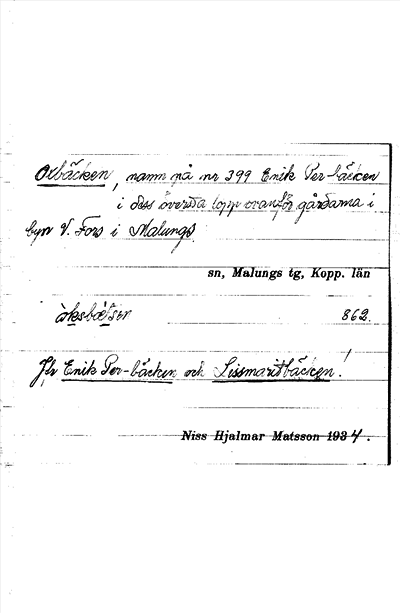 Oxbäcken, namn på nr 399 Enik Per-bäcken
i dess översta lopp ovanför gårdarna i
byn V. Fors i Malungs
sn, Malungs tg, Kopp. län
862.
Jfr Enik Per-bäcken och Lissmaritbäcken!
Niss Hjalmar Matsson 1934.